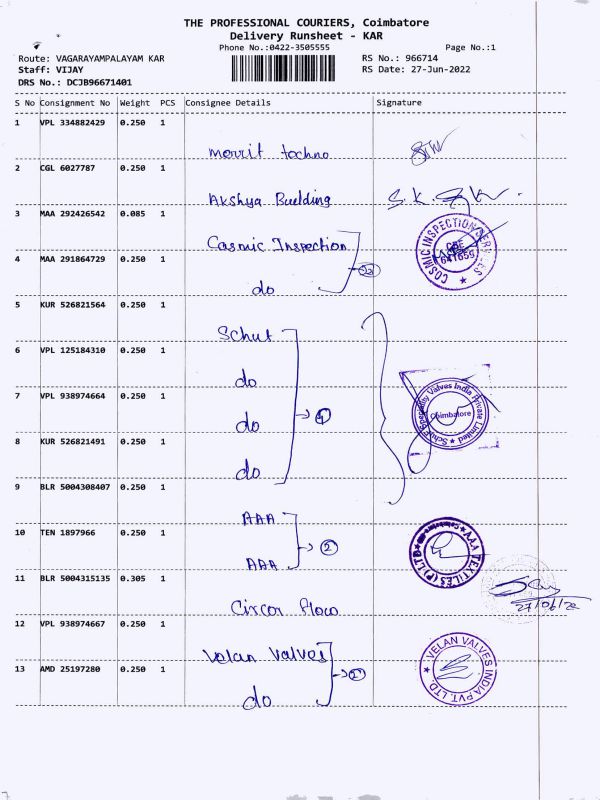 THE PROFESSIONAL COURIERS, Coimbatore
Delivery Runsheet - KAR
Phone No.:0422-3505555
Page No.:1
Route: VAGARAYAMPALAYAM KAR
RS No.: 966714
Staff: VIJAY
RS Date: 27-Jun-2022
DRS No.: DCJB96671401
S No Consignment No Weight PCS Consignee Details Signature
1 VPL 334882429 0.250 1
Merrit techno
2 CGL 6027787 0.250 1
Akshya Building
S.K.
3 MAA 292426542 0.085 1
Cosmic Inspection
COSMIC INSPECTION SERVICES
CBE
641659
4 MAA 291864729 0.250 1
do
5 KUR 526821564 0.250 1
Schut
6 VPL 125184310 0.250 1
do
7 VPL 938974664 0.250 1
do
4
Schuf Speciality Valves India Private Limited
Coimbatore
8 KUR 526821491 0.250 1
do
9 BLR 5004308407 0.250 1
AAA
10 TEN 1897966 0.250 1
AAA
2
AAA TEXTILES (P) LTD
11 BLR 5004315135 0.305 1
Circor Flow
27/06/22
12 VPL 938974667 0.250 1
Velan Valves
VELAN VALVES INDIA PVT. LTD.
13 AMD 25197280 0.250 1
2
do